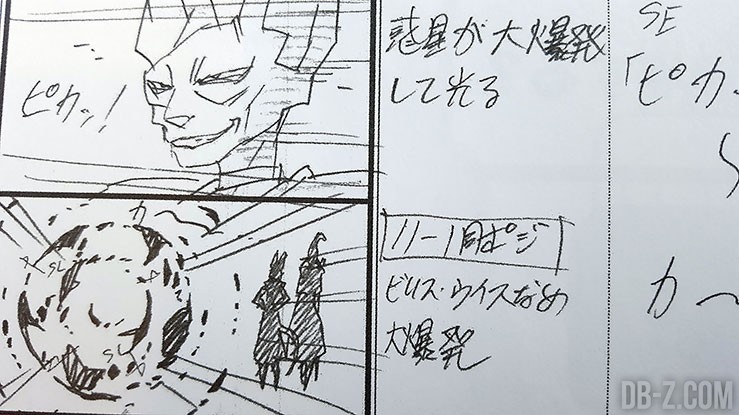 ピカッ!
惑星が大爆発
して光る
SE
「ピカ
カ〜
11-1同ポジ
ビルス・ウイスなめ
大爆発
カ〜
DB-Z.COM